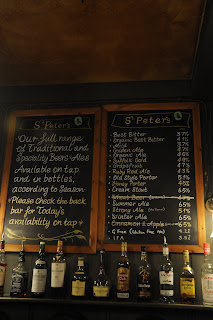 St Peter's
Our full range
of Traditional and
Speciality Beers & Ales
Available on tap
and in bottles,
according to Season
* Please check the back
bar for Today's
availability on tap *
St Peter's
Best Bitter 3.7%
Organic Best Bitter 4.1%
Mild 3.7%
Golden Ale 4.7%
Organic Ale 4.5%
Suffolk Gold 4.9%
Grapefruit 4.7%
Ruby Red Ale 4.3%
Old Style Porter 5.1%
Honey Porter 4.5%
Cream Stout 6.5%
Wheat Beer
Summer Ale 6.5%
Strong Ale 5.1%
Winter Ale 6.5%
Cinnamon & Apple 6.5%
G Free
IPA